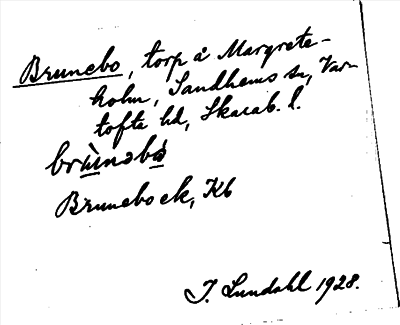 Brunebo, torp å Margrete-
holm, Sandhems sn, Var-
tofta hd, Skarab. l.
brùnəbò
Brunebo ek, Kb
J. Lundahl 1928.